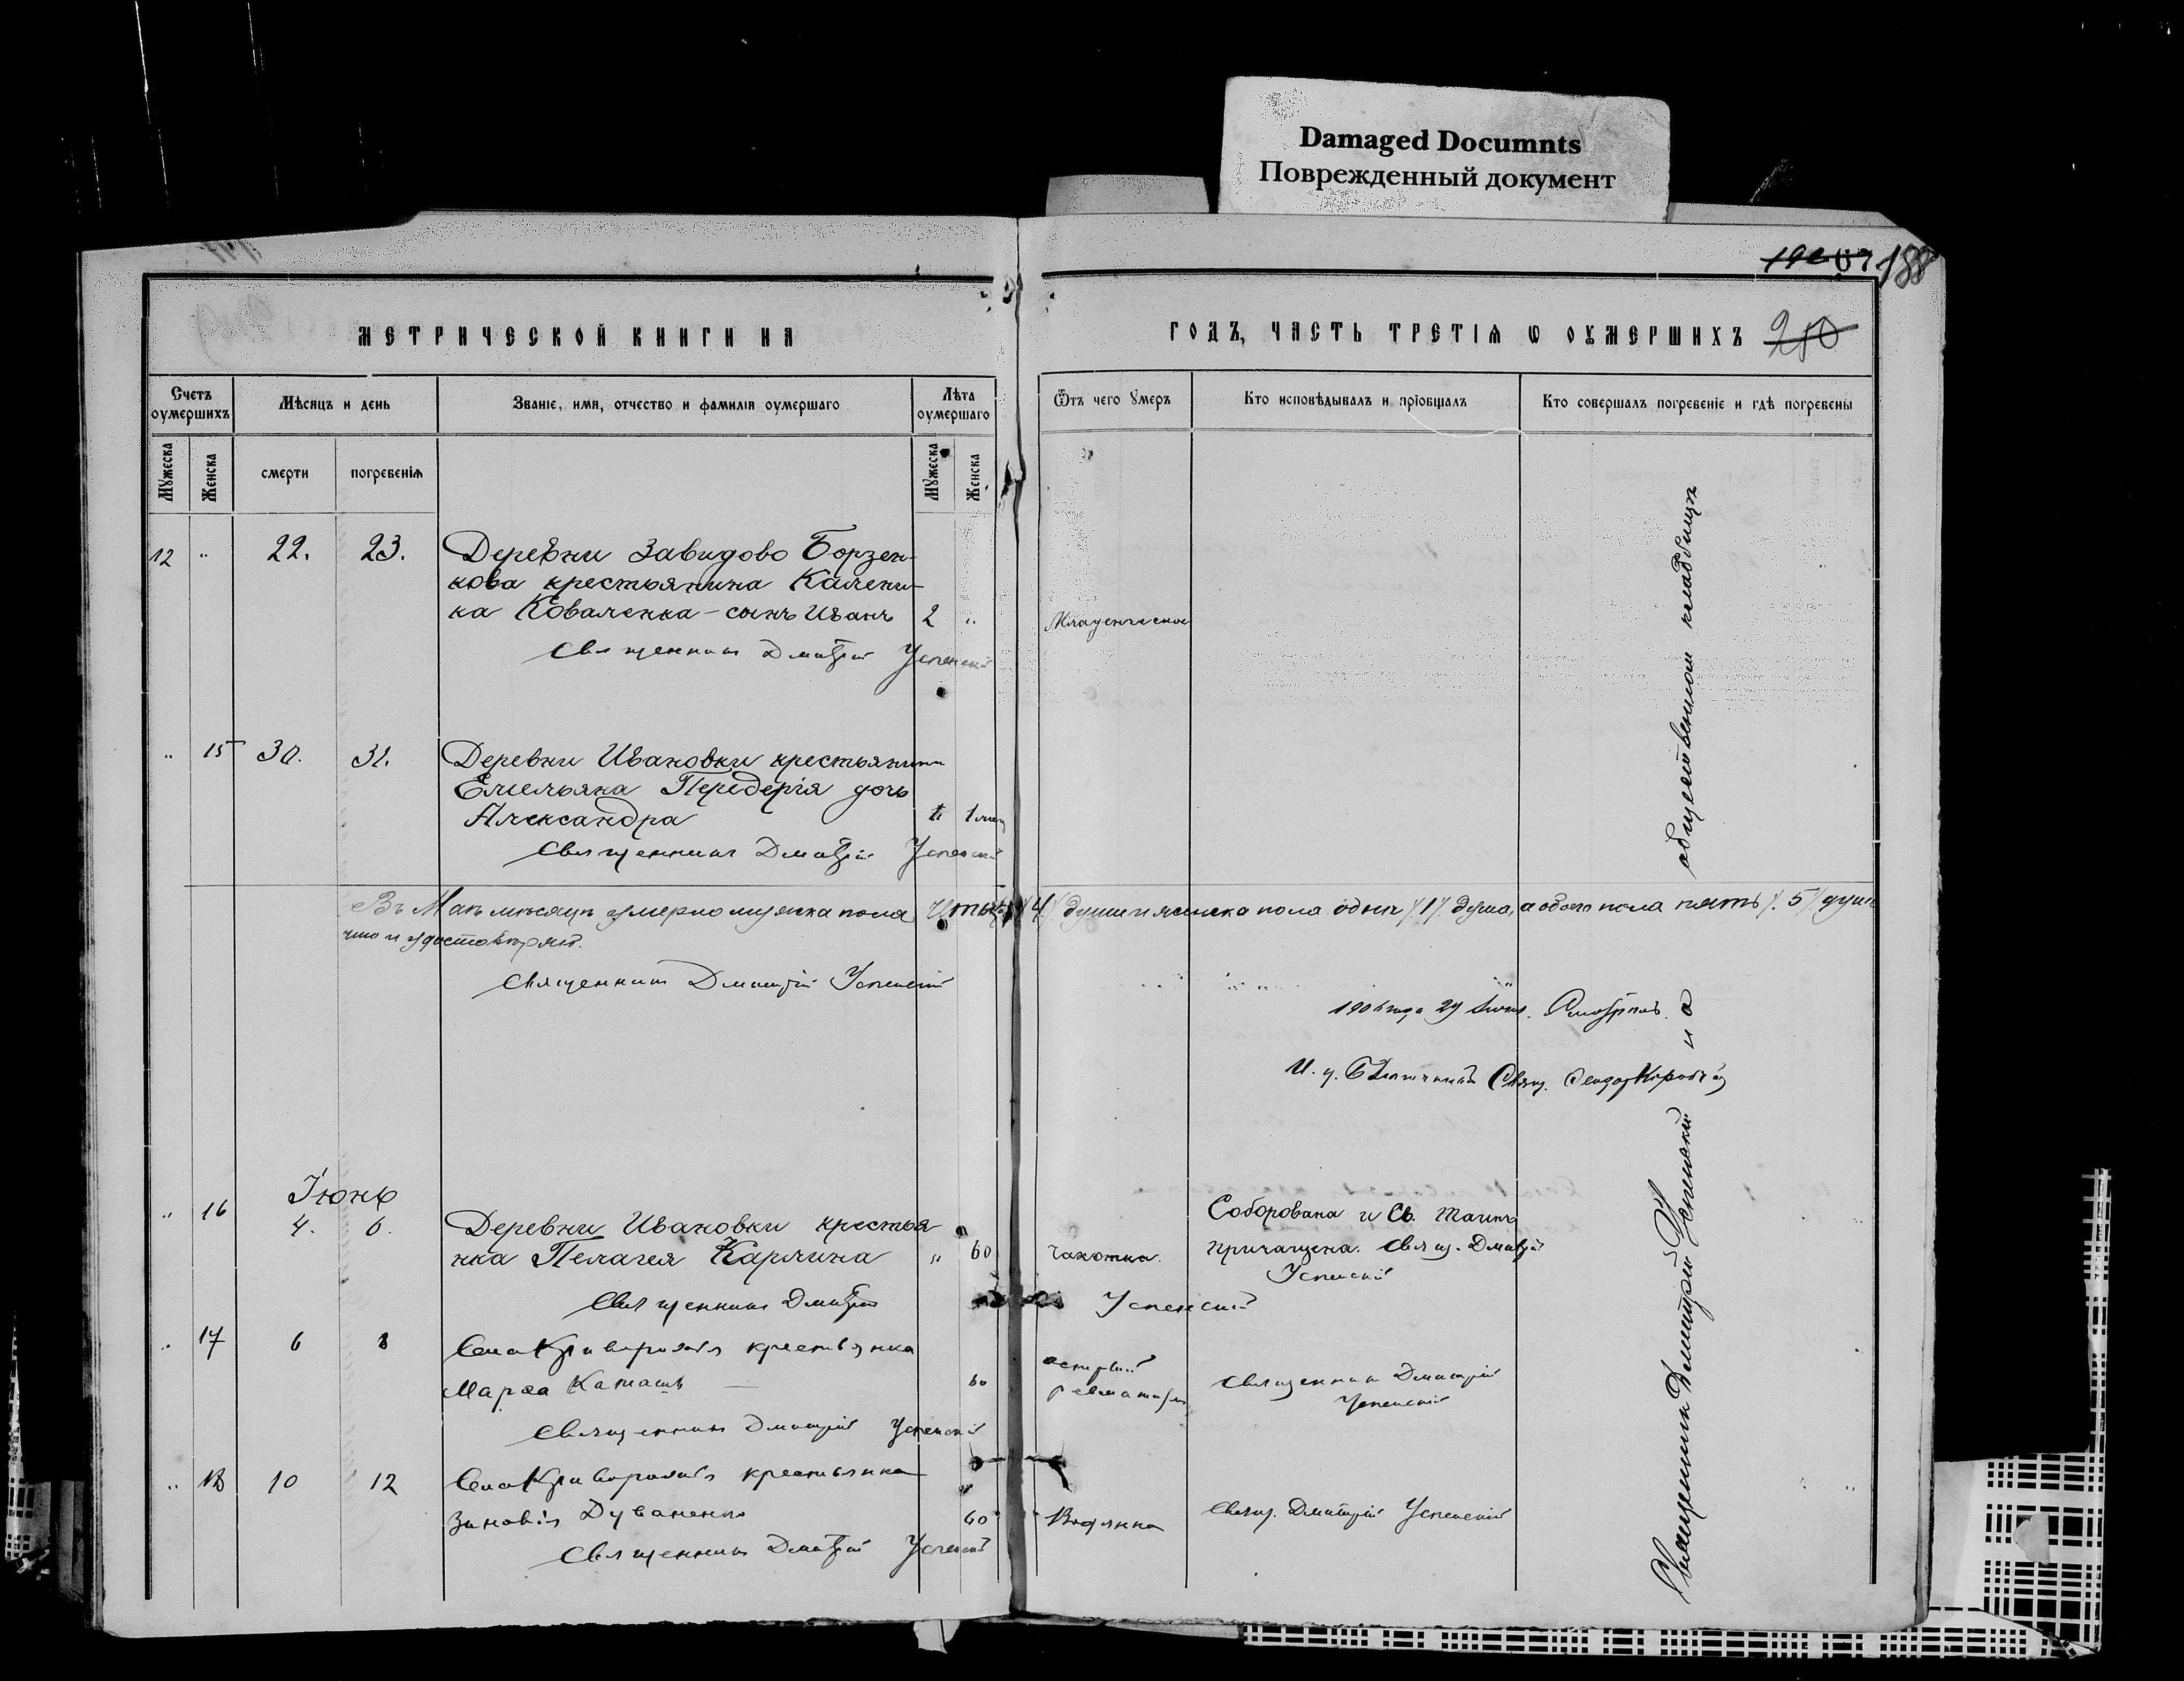 Damaged Documnts
Поврежденный документ
188
МЕТРИЧЕСКОЙ КНИГИ НА
ГОДЪ, ЧАСТЬ ТРЕТІѦ Ѡ ОУМЕРШИХЪ
Счетъ оумершихъ
Мѣсяцъ и день
Званіе, имя, отчество и фамилія оумершаго
Лѣта оумершаго
Ѿтъ чего Умеръ
Кто исповѣдывалъ и пріобщалъ
Кто совершалъ погребеніе и гдѣ погребены
Мужеска
Женска
смерти
погребеніѧ
Мужеска
Женска
12 " 22. 23. Деревни Завидово Борзен-
кова крестьянина Калени-
ка Коваленка - сынъ Иванъ 2 " Младенческая
Священникъ Дмитрій Успенскій
" 15 30. 31. Деревни Ивановки крестьянина
Емельяна Передерія дочь
Александра 1 мѣс
Священникъ Дмитрій Успенскій
Въ Маѣ мѣсяцѣ умерло мужска пола четыре /4/ души и женска пола одна /1/ душа, а обоего пола пять /5/ душъ
что и удостовѣряю.
Священникъ Дмитрій Успенскій
29 Іюня. Смотрѣлъ.
И. д. Благочиннаго Свящ.
Іюнь
" 16 4. 6. Деревни Ивановки крестья
нка Пелагея Карлина " 60 чахотка. Соборована и Св. Таинъ
причащена. Свящ. Дмитрій
Успенскій
Священникъ Дмитрій Успенскій
" 17 6 8 Села Криворожья крестьянка
Марѳа 60 острый
ревматизм Священникъ Дмитрій
Успенскій
Священникъ Дмитрій Успенскій
" 18 10 12 Села Криворожья крестьянка "
Зиновія Дуваненко 60 Водянка Свящ. Дмитрій Успенскій
Священникъ Дмитрій Успенскій
Священникъ Дмитрій Успенскій на общественном кладбищѣ